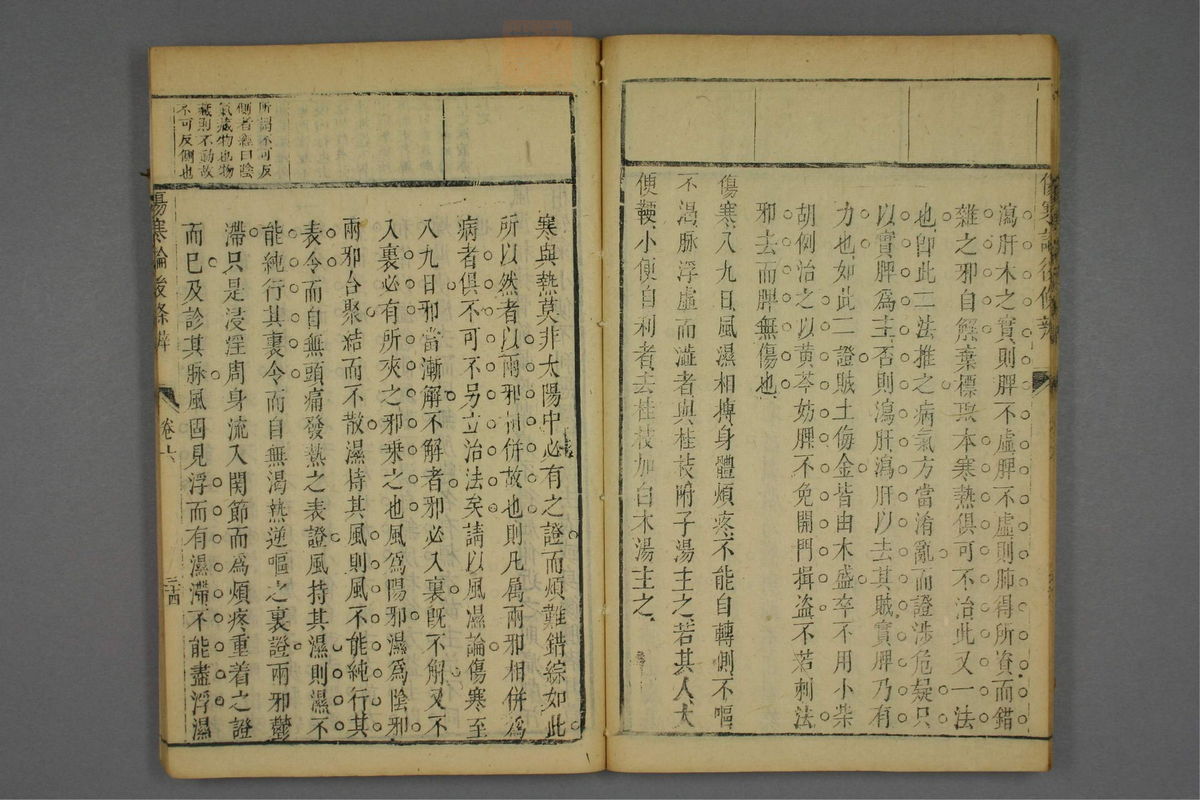 瀉肝木之實則脾不虛脾不虛則肺得所資而錯
雜之邪自解棄標取本寒熱俱可不治此又一法
也卽此二法推之病氣方當淆亂而證涉危疑只
以實脾爲主否則瀉肝瀉肝以去其賊實脾乃有
力也如此二證賊土侮金皆由木盛卒不用小柴
胡例治之以黄芩妨脾不免開門揖盗不若刺法
邪去而脾無傷也
傷寒八九日風濕相搏身體煩疼不能自轉側不嘔
不渴脉浮虛而澁者與桂枝附子湯主之若其人大
便鞕小便自利者去桂枝加白木湯主之
傷寒論後條辨
所謂不可反
側者經曰陰
氣藏物也物
藏則不動故
不可反側也
寒與熱莫非太陽中必有之證而煩難錯綜如此
所以然者以兩邪相併故也則凡属兩邪相併爲
病者俱不可不另立治法矣請以風濕論傷寒至
八九日邪當漸解不解者邪必入裏旣不解又不
入裏必有所夾之邪乗之也風爲陽邪濕爲陰邪
兩邪合聚結而不散濕持其風則風不能純行其
表令而自無頭痛發熱之表證風持其濕則濕不
能純行其裏令而自無渴熱逆嘔之裏證兩邪欝
滯只是浸淫周身流入関節而爲煩疼重着之證
而已及診其脉風固見浮而有濕滯不能盡浮濕
傷寒論後條辨
卷六
三十四